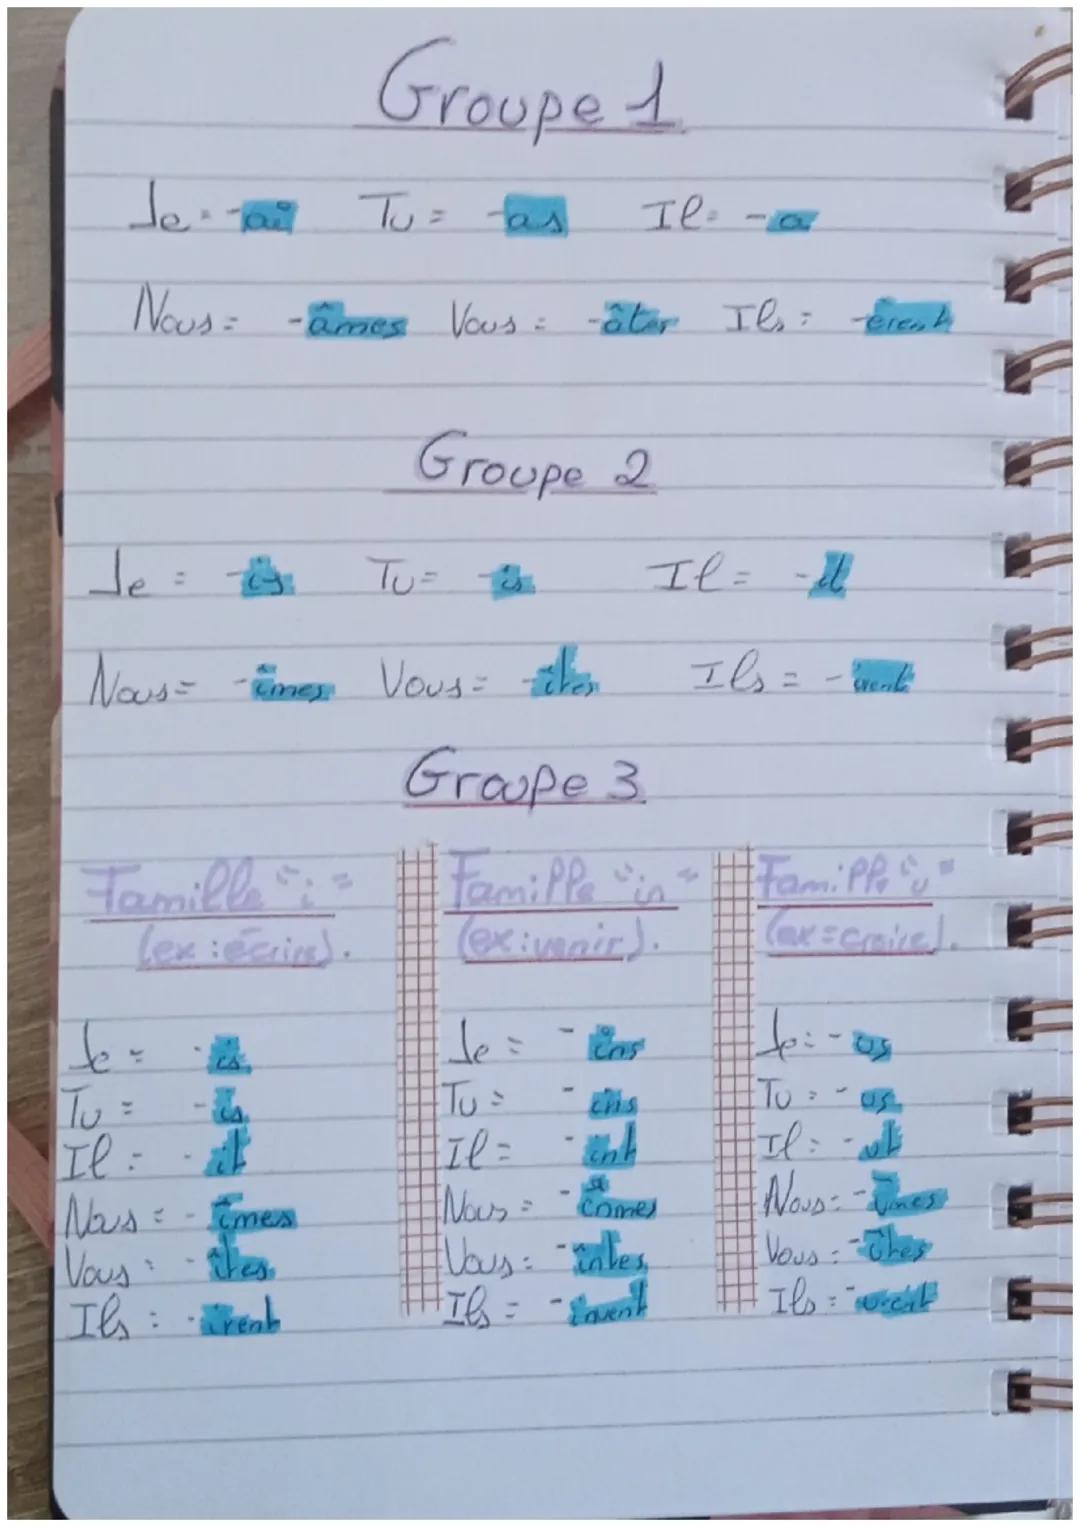 Groupe 1
Je = -ai Tu = -as Il = -a
Nous = -âmes Vous = -âtes Ils = -èrent
Groupe 2
Je = -is Tu = -is Il = -it
Nous = -îmes Vous = -îtes Ils = -irent
Groupe 3
Famille "i" Famille "in" Famille "u"
(ex : écrire). (ex : venir). (ex = croire).
Je = -is Je = -ins Je = -us
Tu = -is Tu = -ins Tu = -us
Il = -it Il = -int Il = -ut
Nous = -îmes Nous = Nous = -ûmes
Vous : -îtes Vous = -întes Vous = -ûtes
Ils : -irent Ils = Ils = -urent